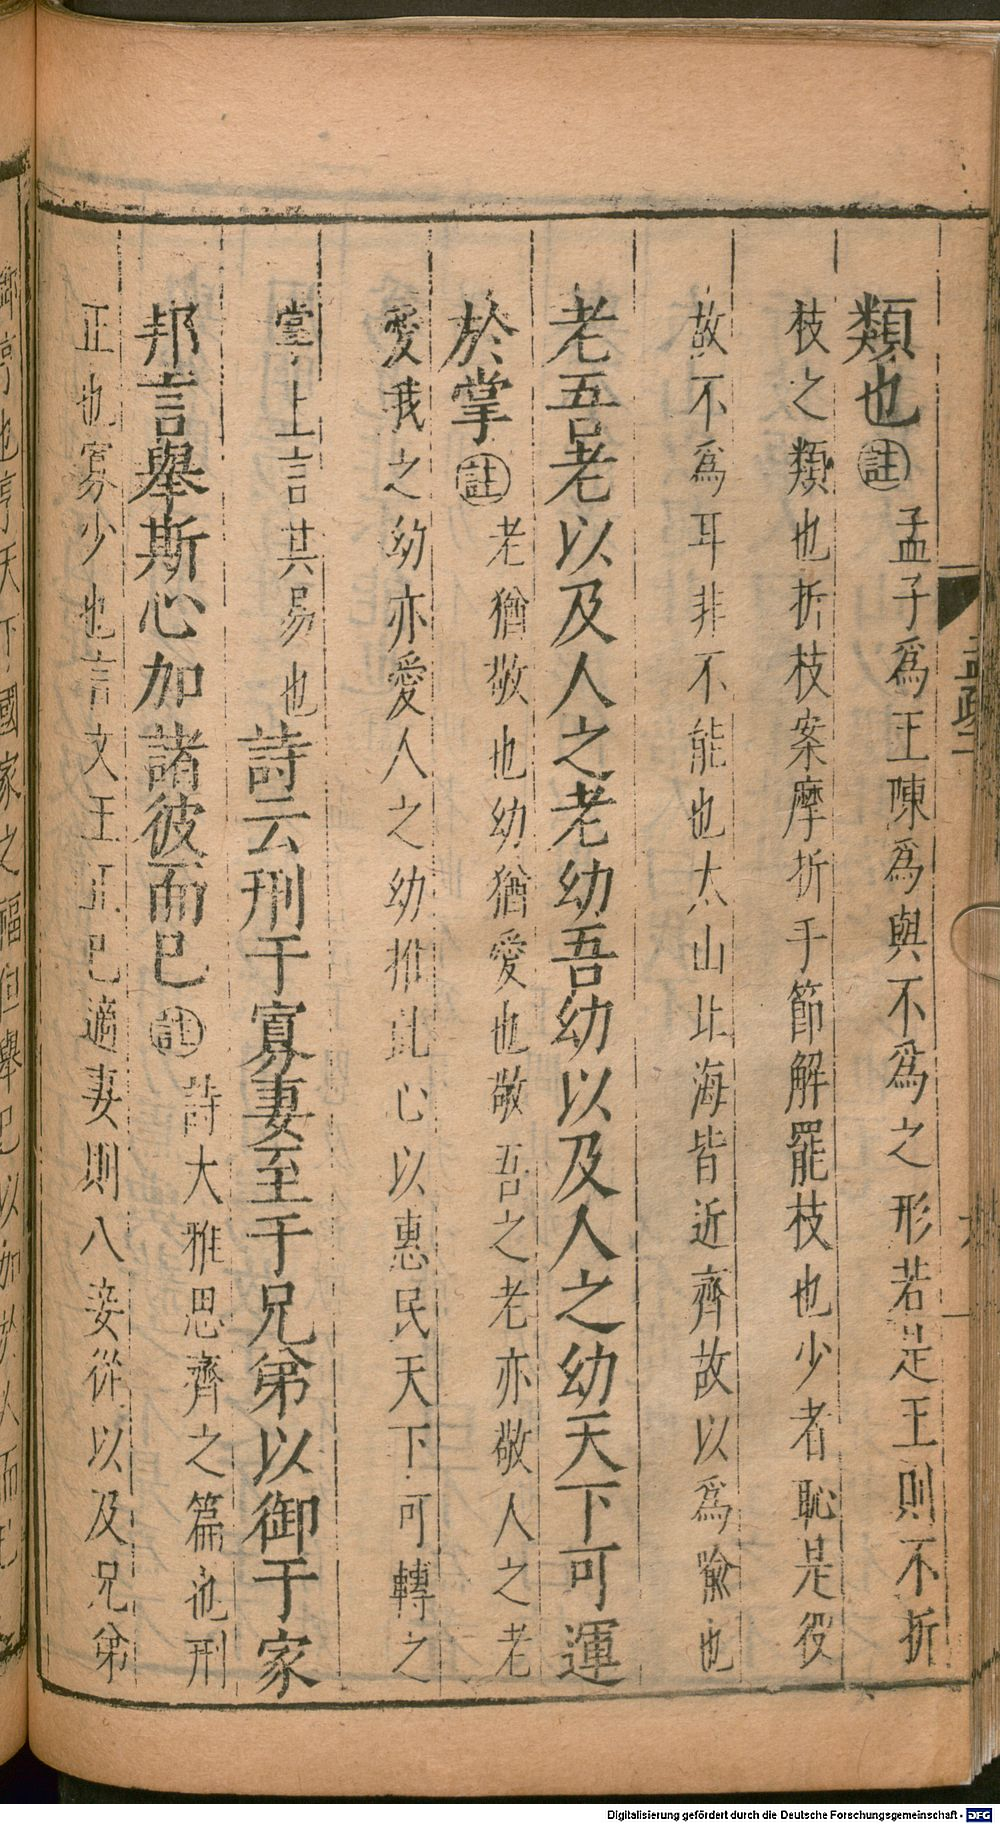 類也㊟孟子爲王陳爲與不爲之形若是王則不折
枝之類也折枝案摩折手節解罷枝也少者恥是役
故不爲耳非不能也太山北海皆近齊故以爲喻也
老吾老以及人之老幼吾幼以及人之幼天下可運
於掌註老猶敬也幼猶愛也敬吾之老亦敬人之老
愛我之幼亦愛人之幼推此心以惠民天下可轉之
掌上言其易也詩云刑于寡妻至于兄弟以御于家
邦言舉斯心加諸彼而已註詩大雅思齊之篇也刑
正也寡少也言文王正已適妻則八妾從以及兄弟
御享也享天下國家之福但舉已以加於人而已
孟疏
Digitalisierung gefördert durch die Deutsche Forschungsgemeinschaft - DFG